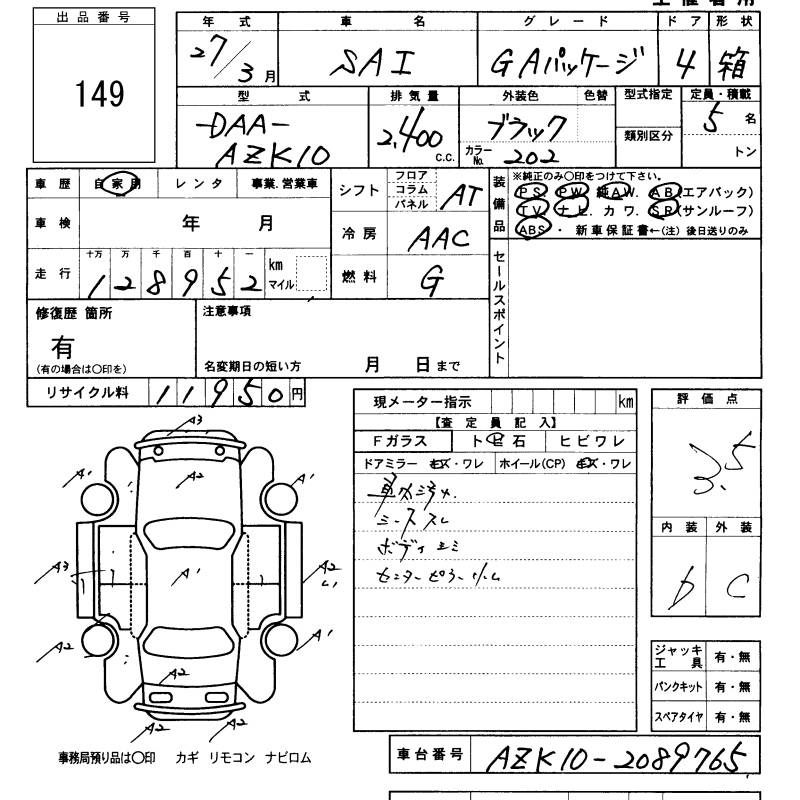 出品番号
149
年式 車名 グレード ドア 形状
27/3月 SAI GAパッケージ 4 箱
型式 排気量 外装色 色替 型式指定 定員・積載
-DAA- AZK10 2,400 c.c. ブラック 類別区分 5名
カラーNo. 202 トン
車歴 自家用 レンタ 事業.営業車
シフト フロア コラム パネル AT
装備品 ※純正のみ〇印をつけて下さい。
PS PW 純AW. AB(エアバック)
TV ナビ. カワ. SR(サンルーフ)
ABS ・ 新車保証書←(注) 後日送りのみ
車検 年 月
冷房 AAC
走行 十万 万 千 百 十 一
128952 km マイル
燃料 G
セールスポイント
修復歴 箇所
有
(有の場合は〇印を)
注意事項
名変期日の短い方 月 日まで
リサイクル料 11950円
現メーター指示 km
【査定員記入】
Fガラス ト ビ 石 ヒビワレ
ドアミラー キズ・ワレ ホイール(CP) キズ・ワレ
車内汚れ.
シートスレ
評価点
3.5
内装 外装
D C
A3
A1 A2 A1
A3 A1 A2
A2 A1
A2
A2 A2
ジャッキ工具 有・無
パンクキット 有・無
スペアタイヤ 有・無
事務局預り品は〇印 カギ リモコン ナビロム
車台番号 AZK10-2089765